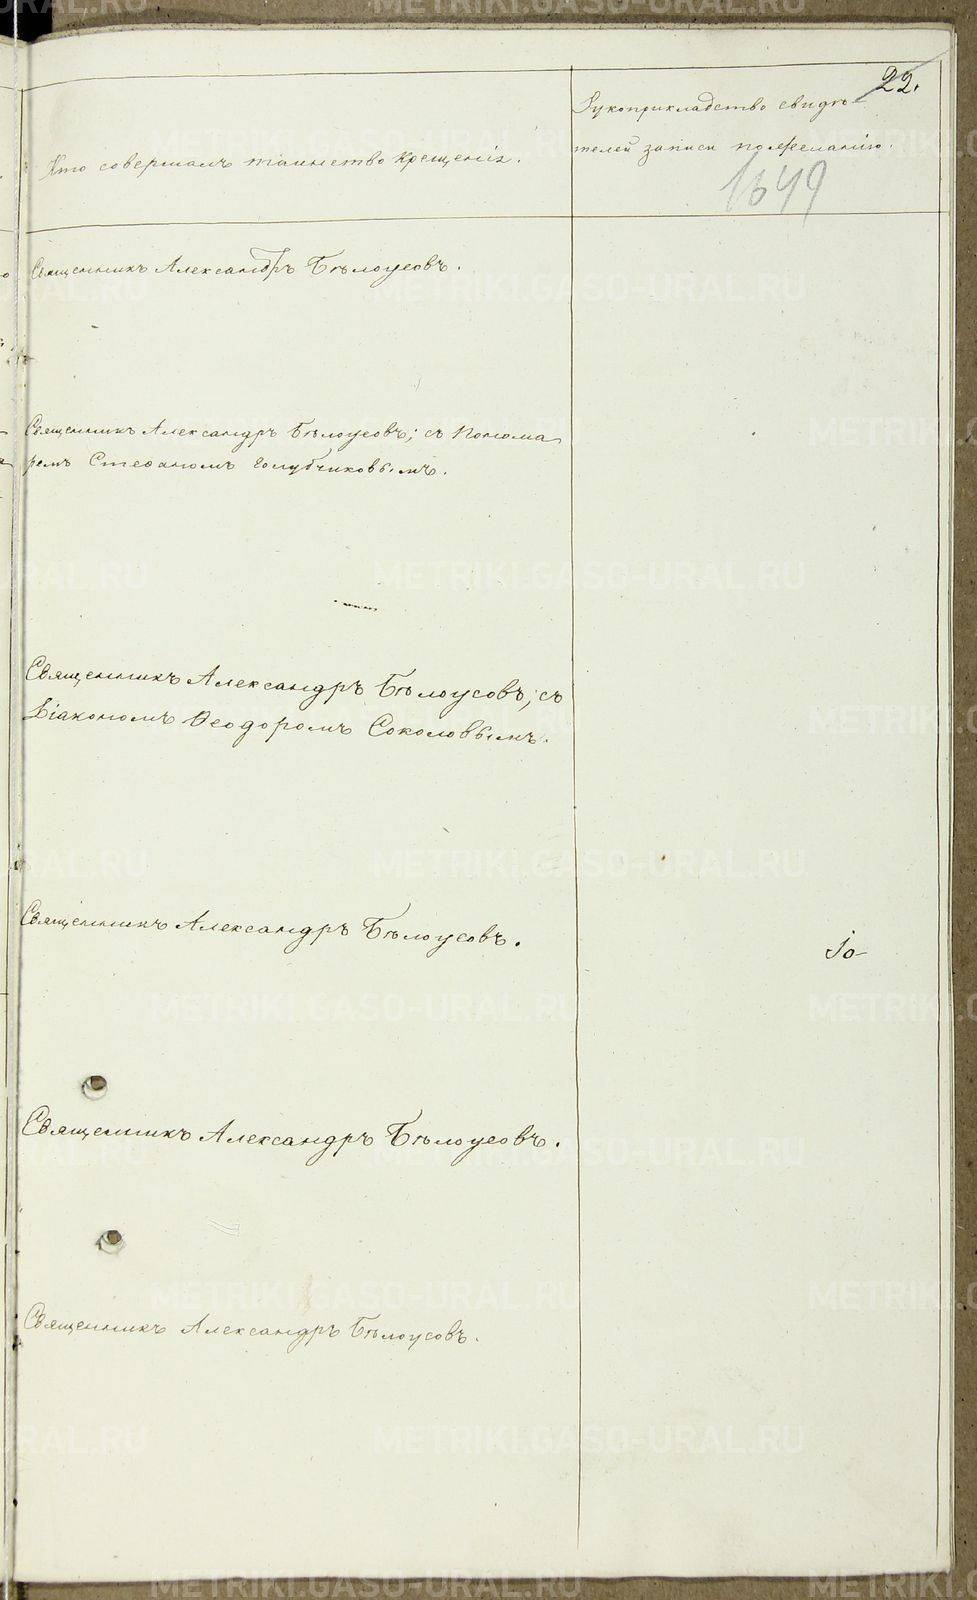 22.
Кто совершалъ таинство крещенія.
Рукоприкладство свидѣ-
телей записи по желанію.
1649
Священникъ Александръ Бѣлоусовъ.
Священникъ Александръ Бѣлоусовъ; съ Понома
ремъ Стефаномъ Голубчиковымъ.
Священникъ Александръ Бѣлоусовъ; съ
Діакономъ Ѳеодоромъ Соколовымъ.
Священникъ Александръ Бѣлоусовъ.
Іо-
Священникъ Александръ Бѣлоусовъ.
Священникъ Александръ Бѣлоусовъ.
METRIKI.GASO-URAL.RU